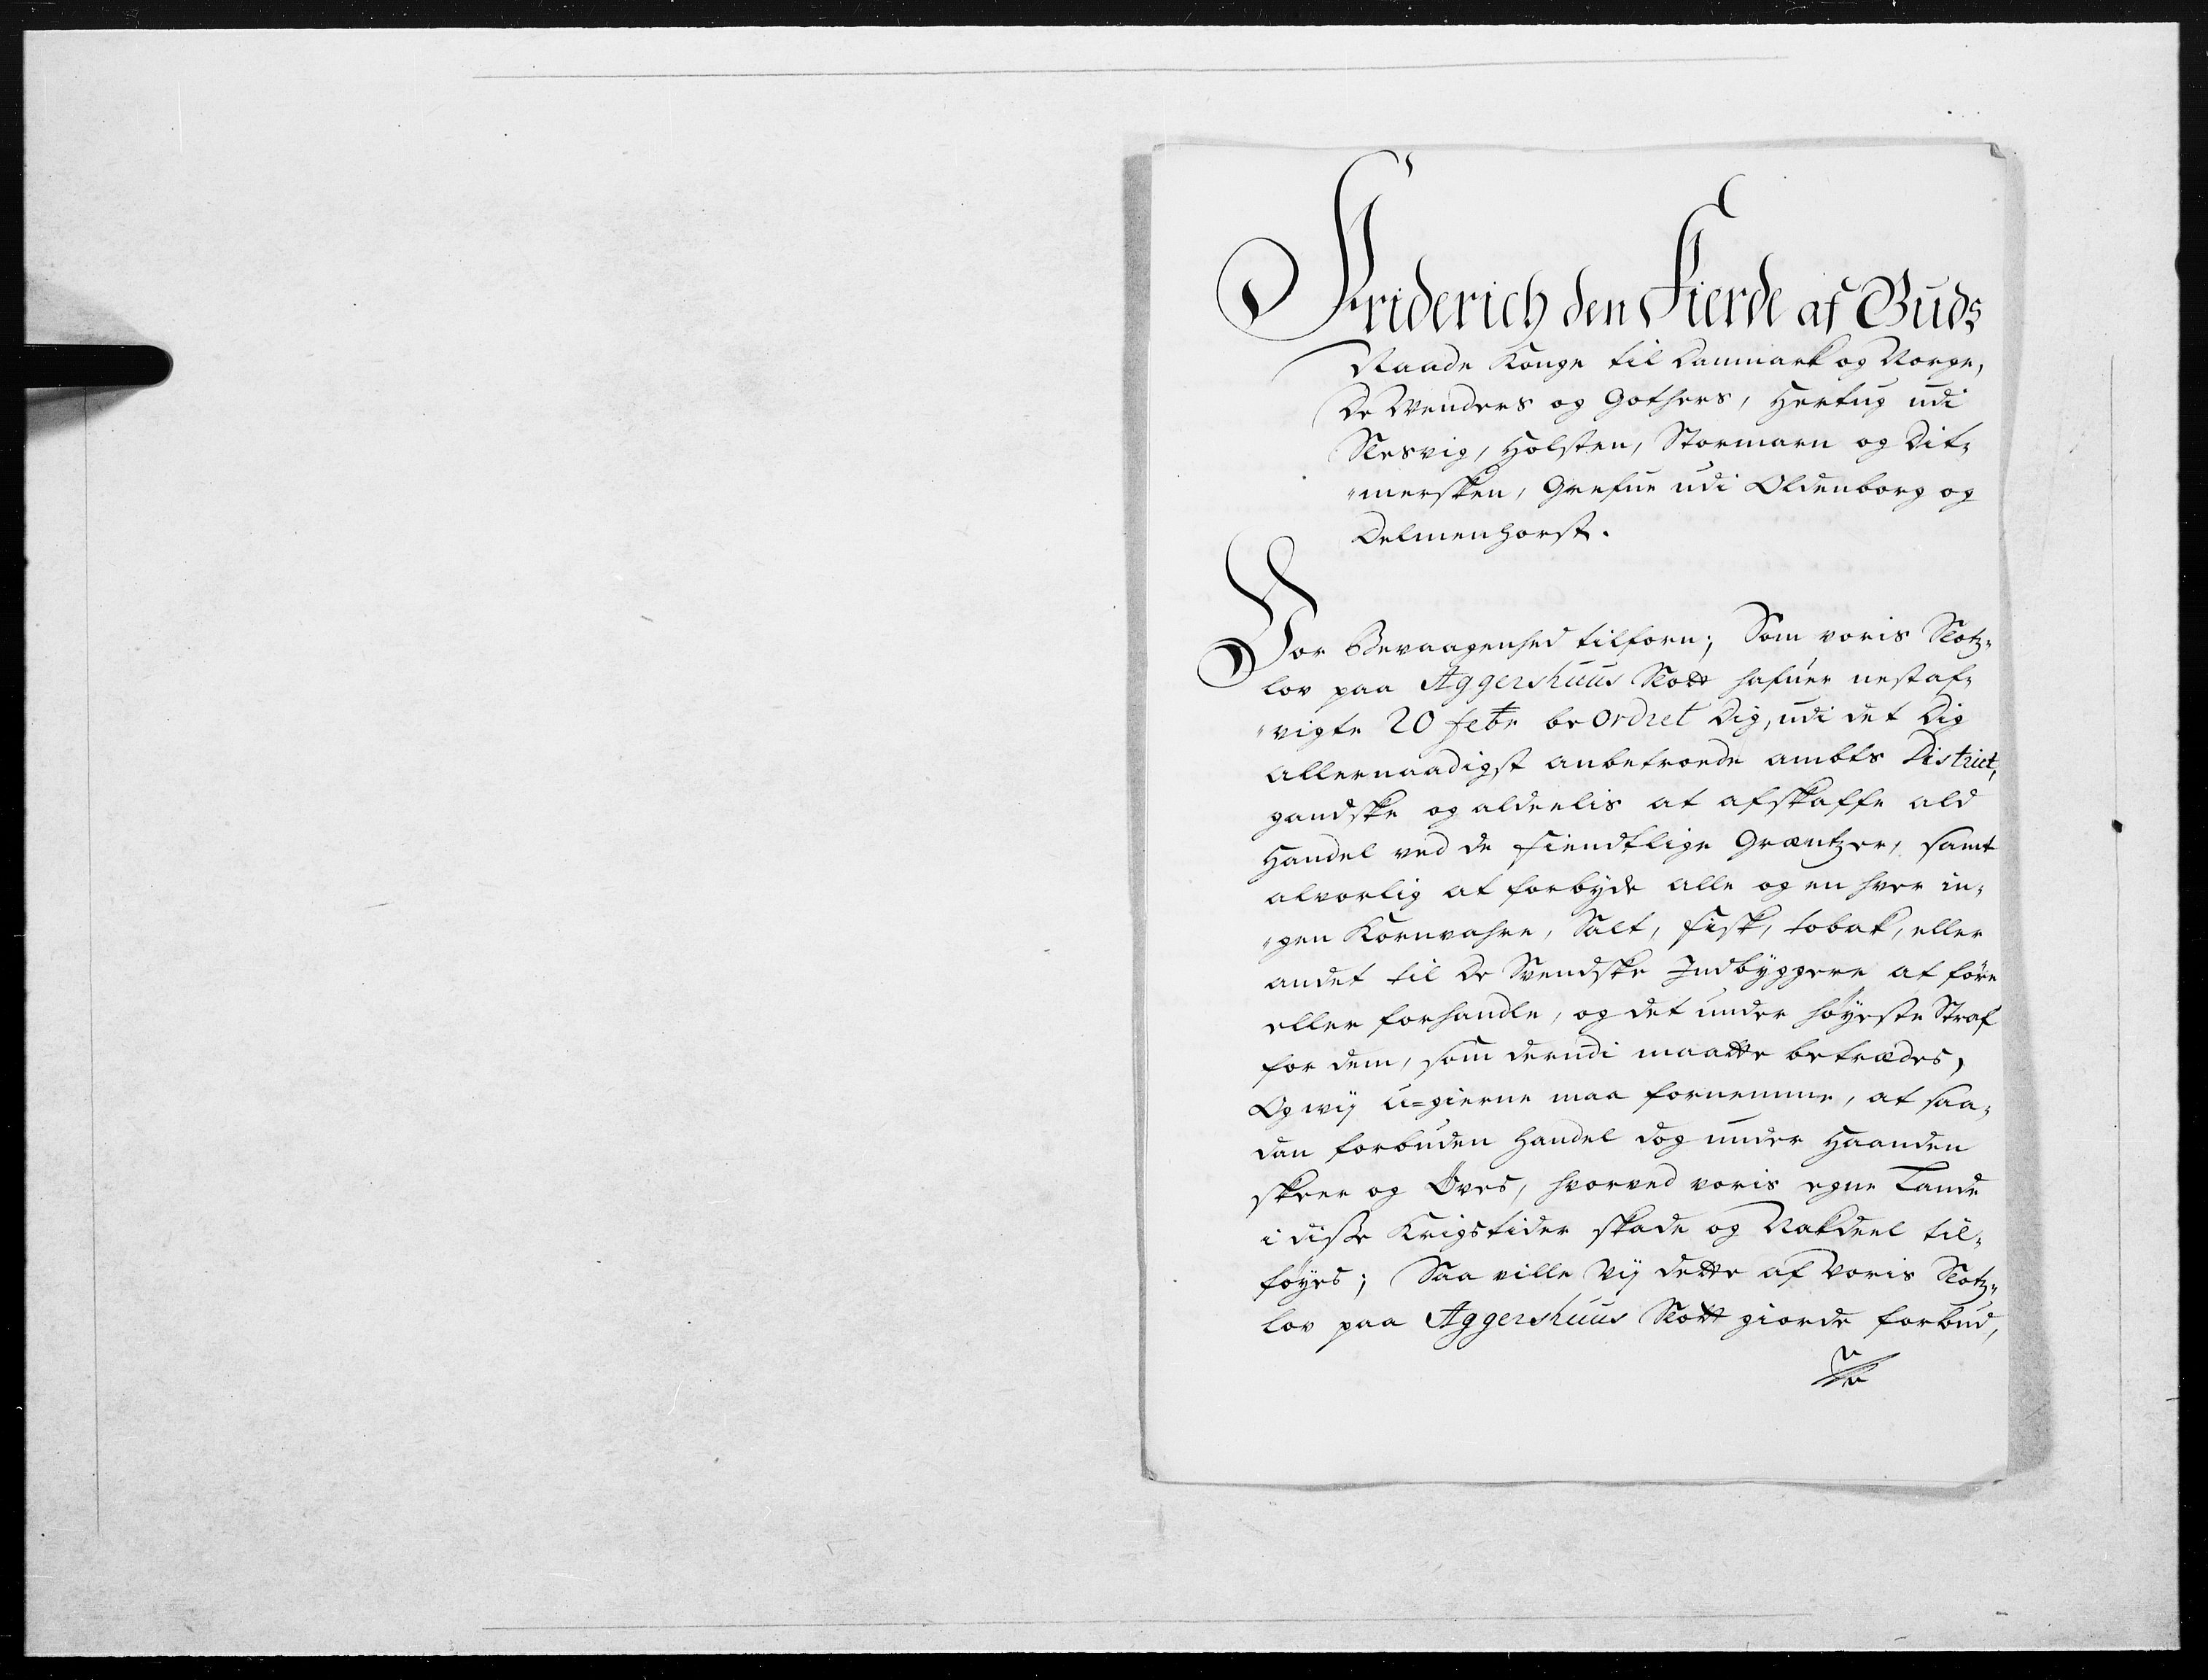 Friderich den Fierde af Guds
Naade Konge til Danmark og Norge,
De Wenders og Gothers, Hertug udi
Slesvig, Holsten, Stormarn og Dit-
"mersken, Grefue udi Oldenborg og
Delmenhorst.
Vor Bevaagenhed tilforn; Som voris Slotz-
lov paa Aggershuus Slott hafuer nestaf-
"vigte 20 febr beordret Dig, udi det Dig
allernaadigst anbetroede ambts District,
gandske og aldeelis at afskaffe ald
Handel ved de fiendtlige Græntzer, samt
alvorlig at forbyde alle og en hver in-
"gen Kornvahre, Salt, fisk, tobak, eller
andet til De Svendske Indbyggere at føre
eller forhandle, og det under høyeste Straf
for dem, som derudi maatte betrædes,
Og wij u=gierne maa fornemme, at saa-
dan forbuden Handel dog under Haanden
skeer og Øves, hvorved voris egne Lande
i disse Krigstider skade og Nakdeel til-
føyes; Saa ville Vij dette af Voris Slotz-
lov paa Aggershuus Slott giorde forbud,